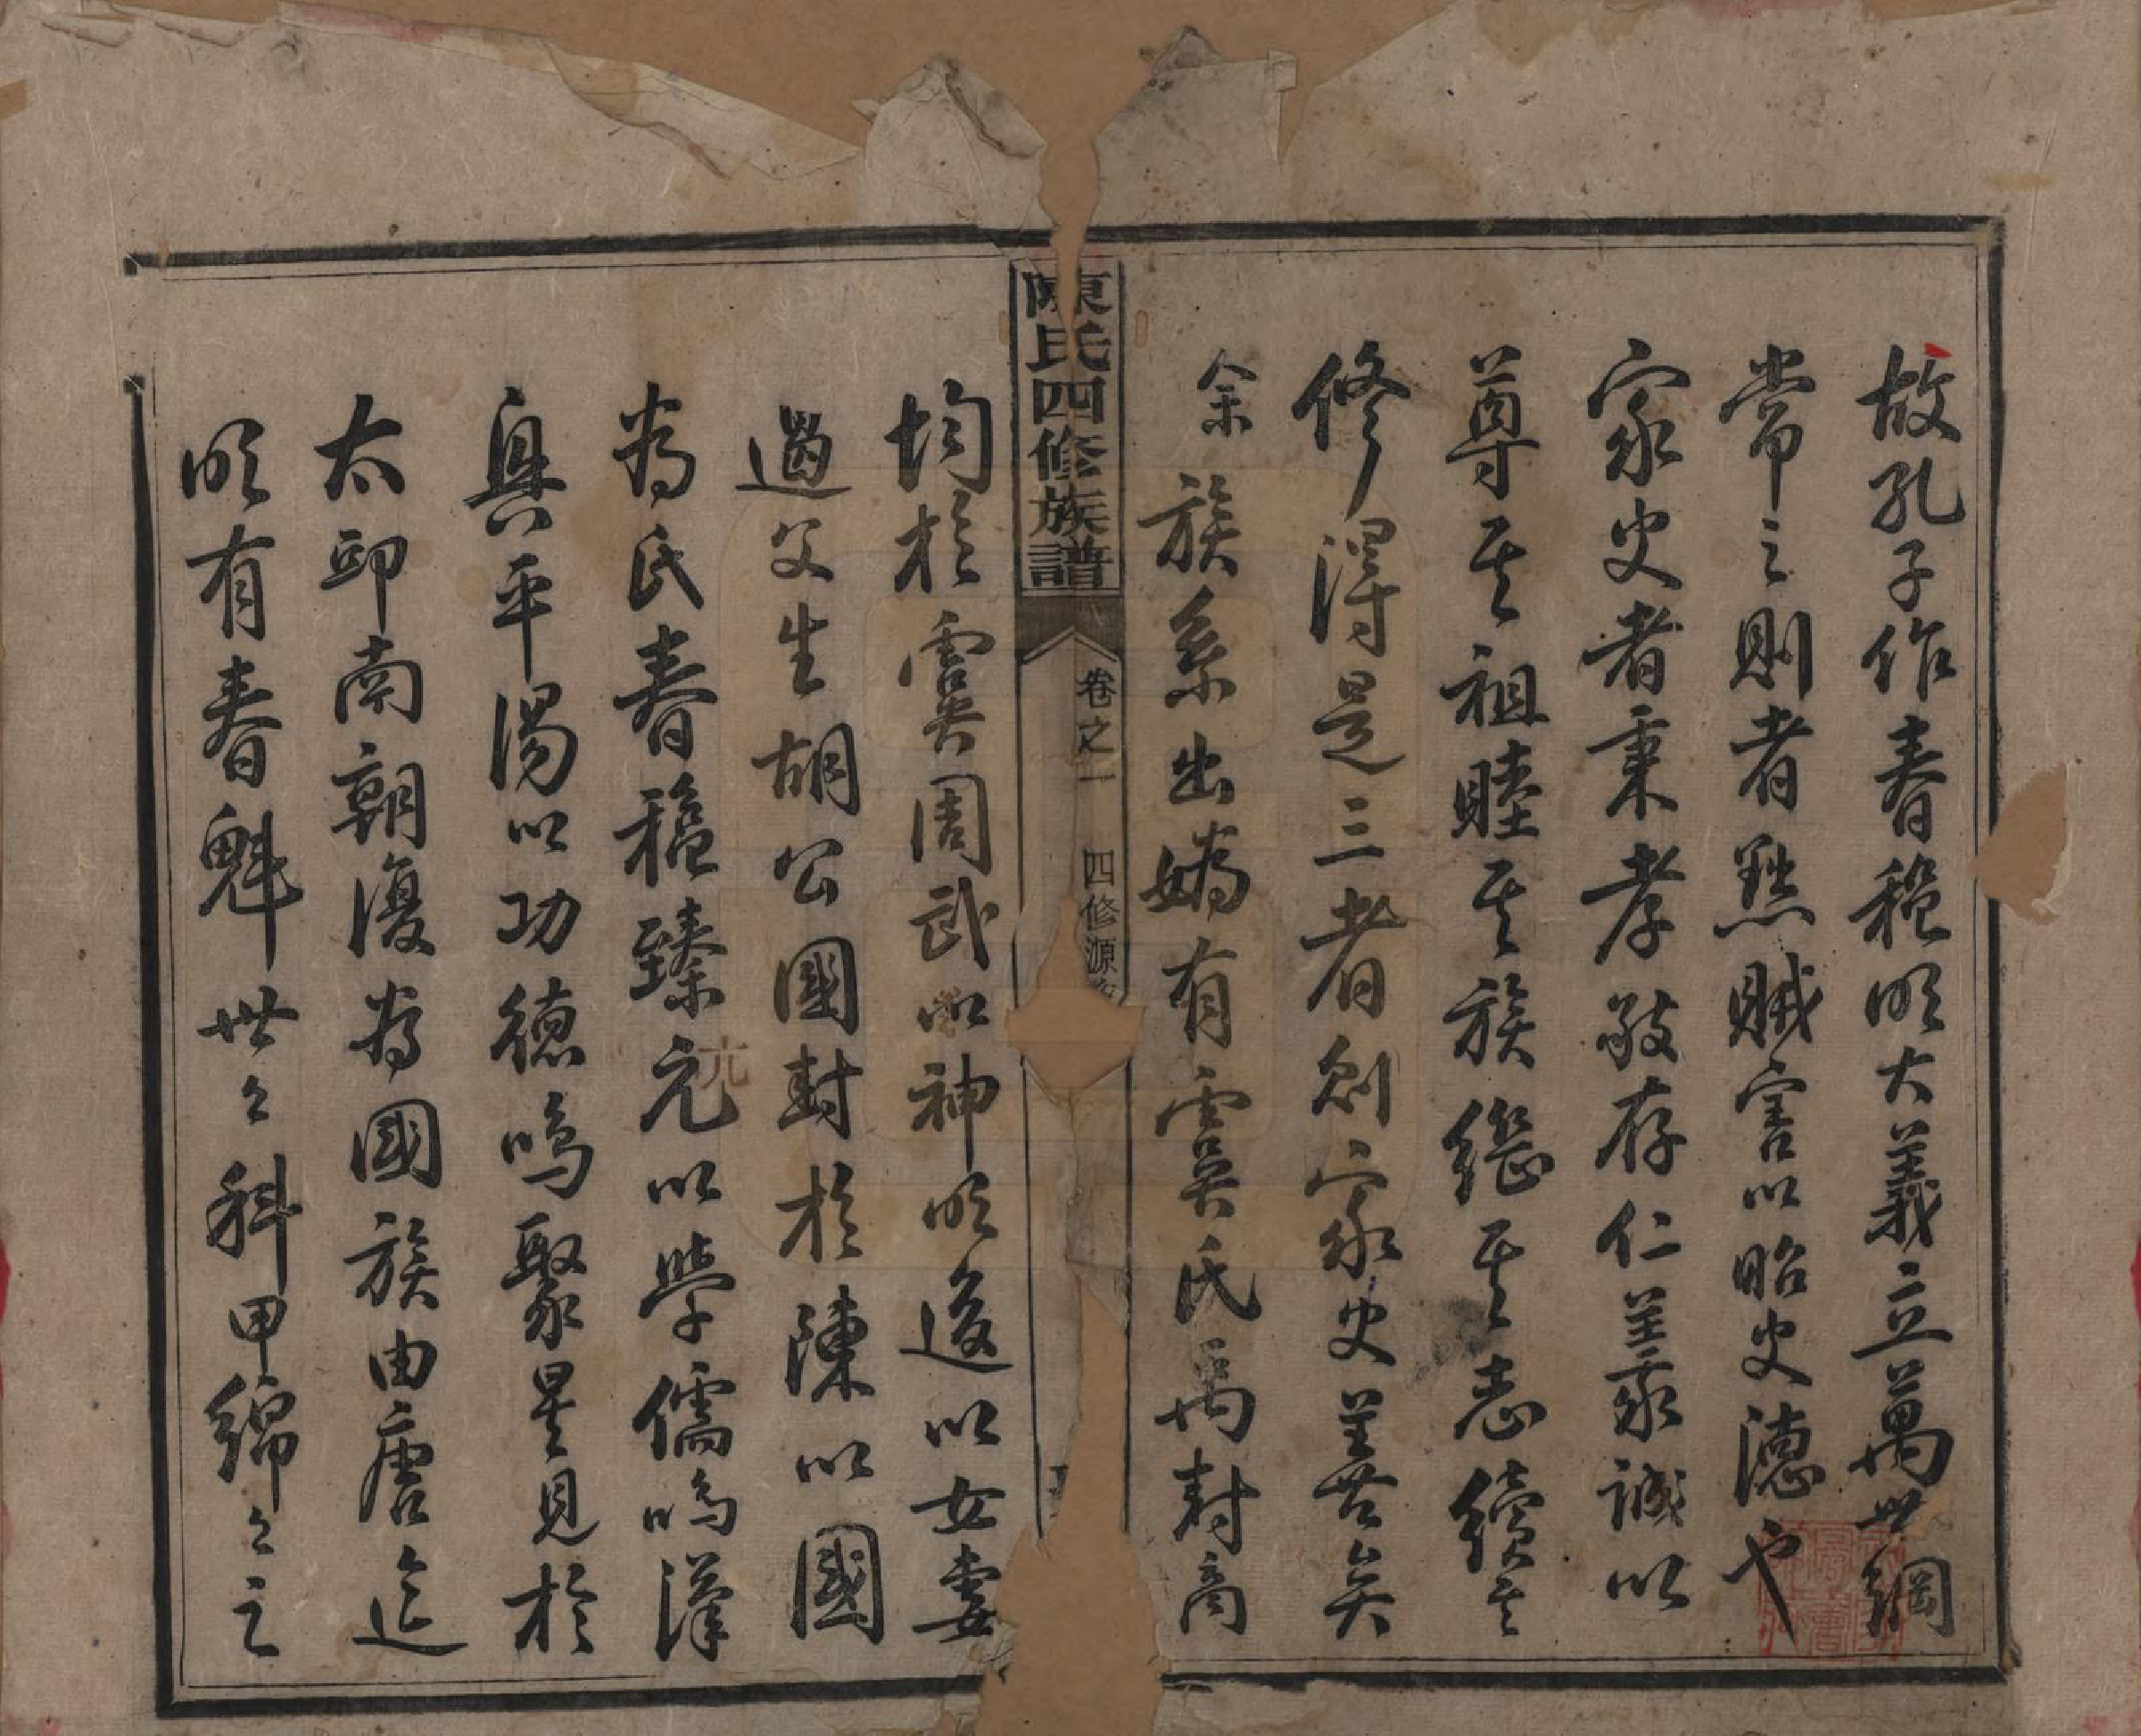 故孔子作春秋明大義立萬世綱
常之則者點賊害以昭史德也
家史者秉孝敬存仁養誠以
尊其祖睦其族繼其志續其
修得是三者則家史善矣
余族系出媯有虞氏禹封商
均於虞周武以神明後以女妻
遏父生胡公國封於陳以國
為氏春秋臻元以學儒鳴漢
興平陽以功德鳴聚星見於
太邱南朝復為國族由唐迄
明有春魁世々科甲綿々之
陳氏四修族譜
卷之一
四修源